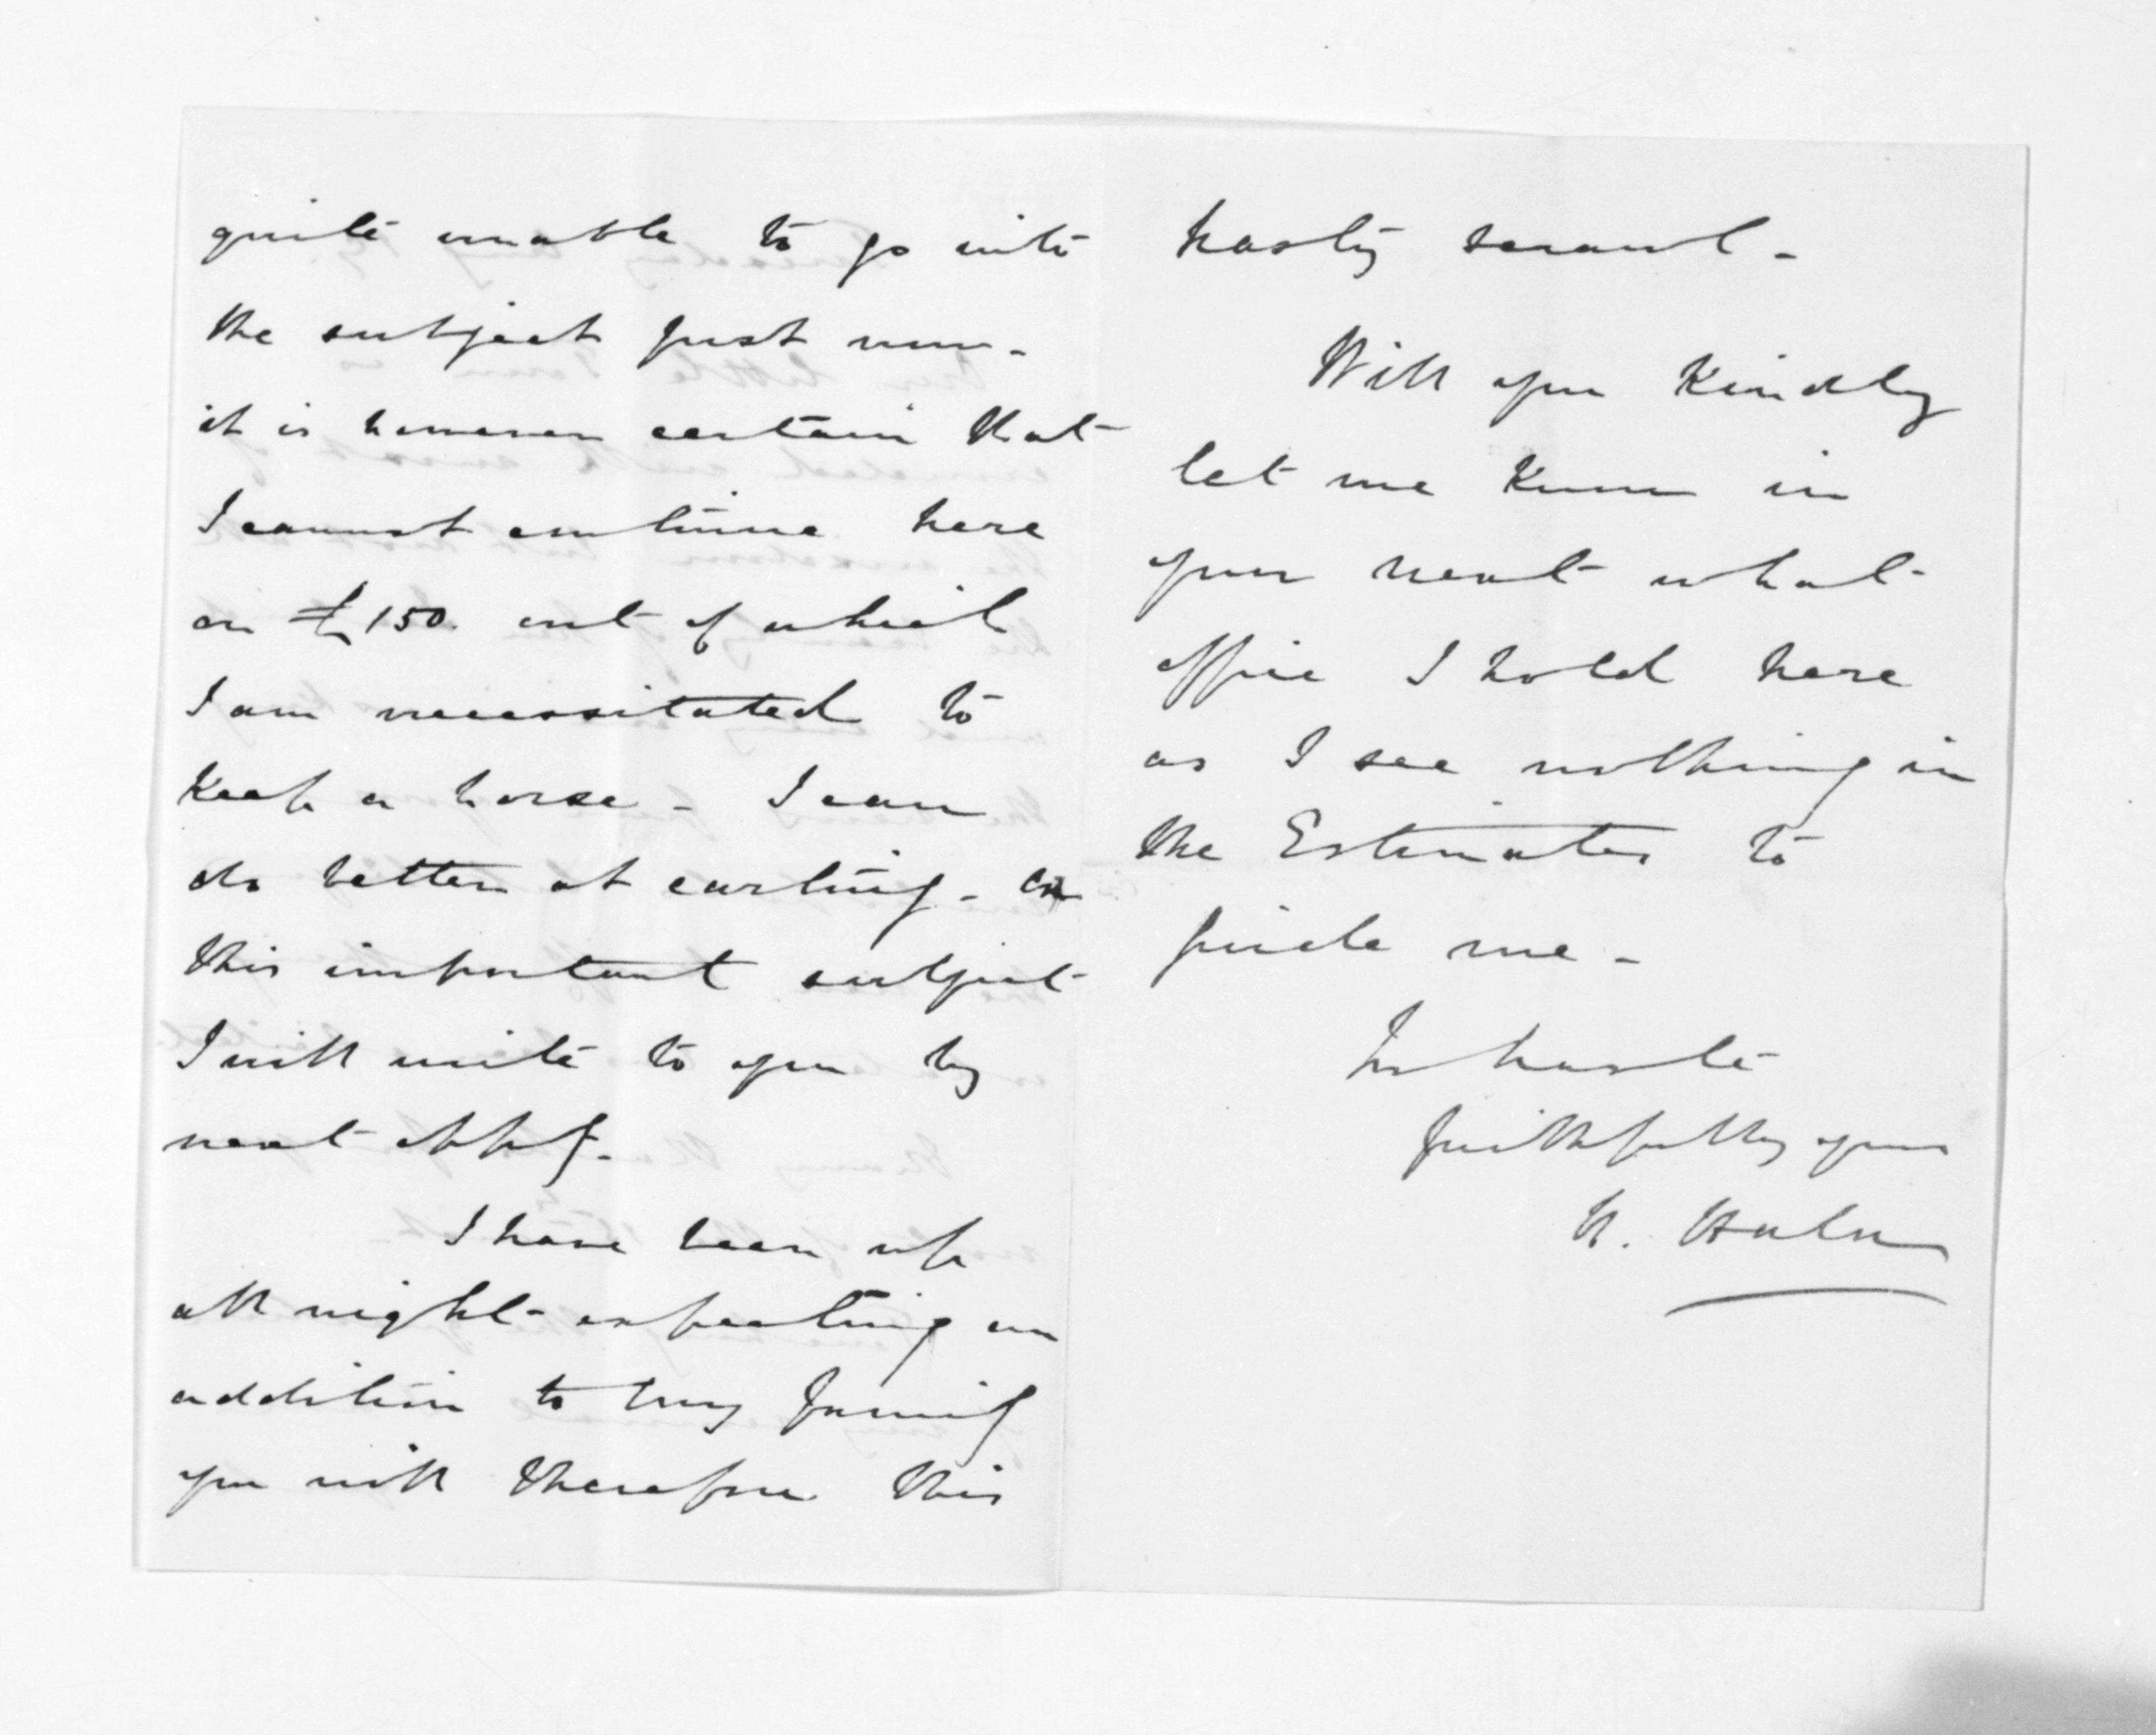 quite unable to go into
the subject just now -
it is however certain that
I cannot continue here
on £150. out of which
I am necessitated to
Keep a horse - I can
do better at carting - on
this important subject
I will write to you by
next oppy.
I have been up
all night expecting an
addition to my family
you will therefore this
hasty scrawl -
Will you Kindly
let me Know in
your next what
office I hold here
as I see nothing in
the Estimates to
guide me -
In haste
faithfully yours